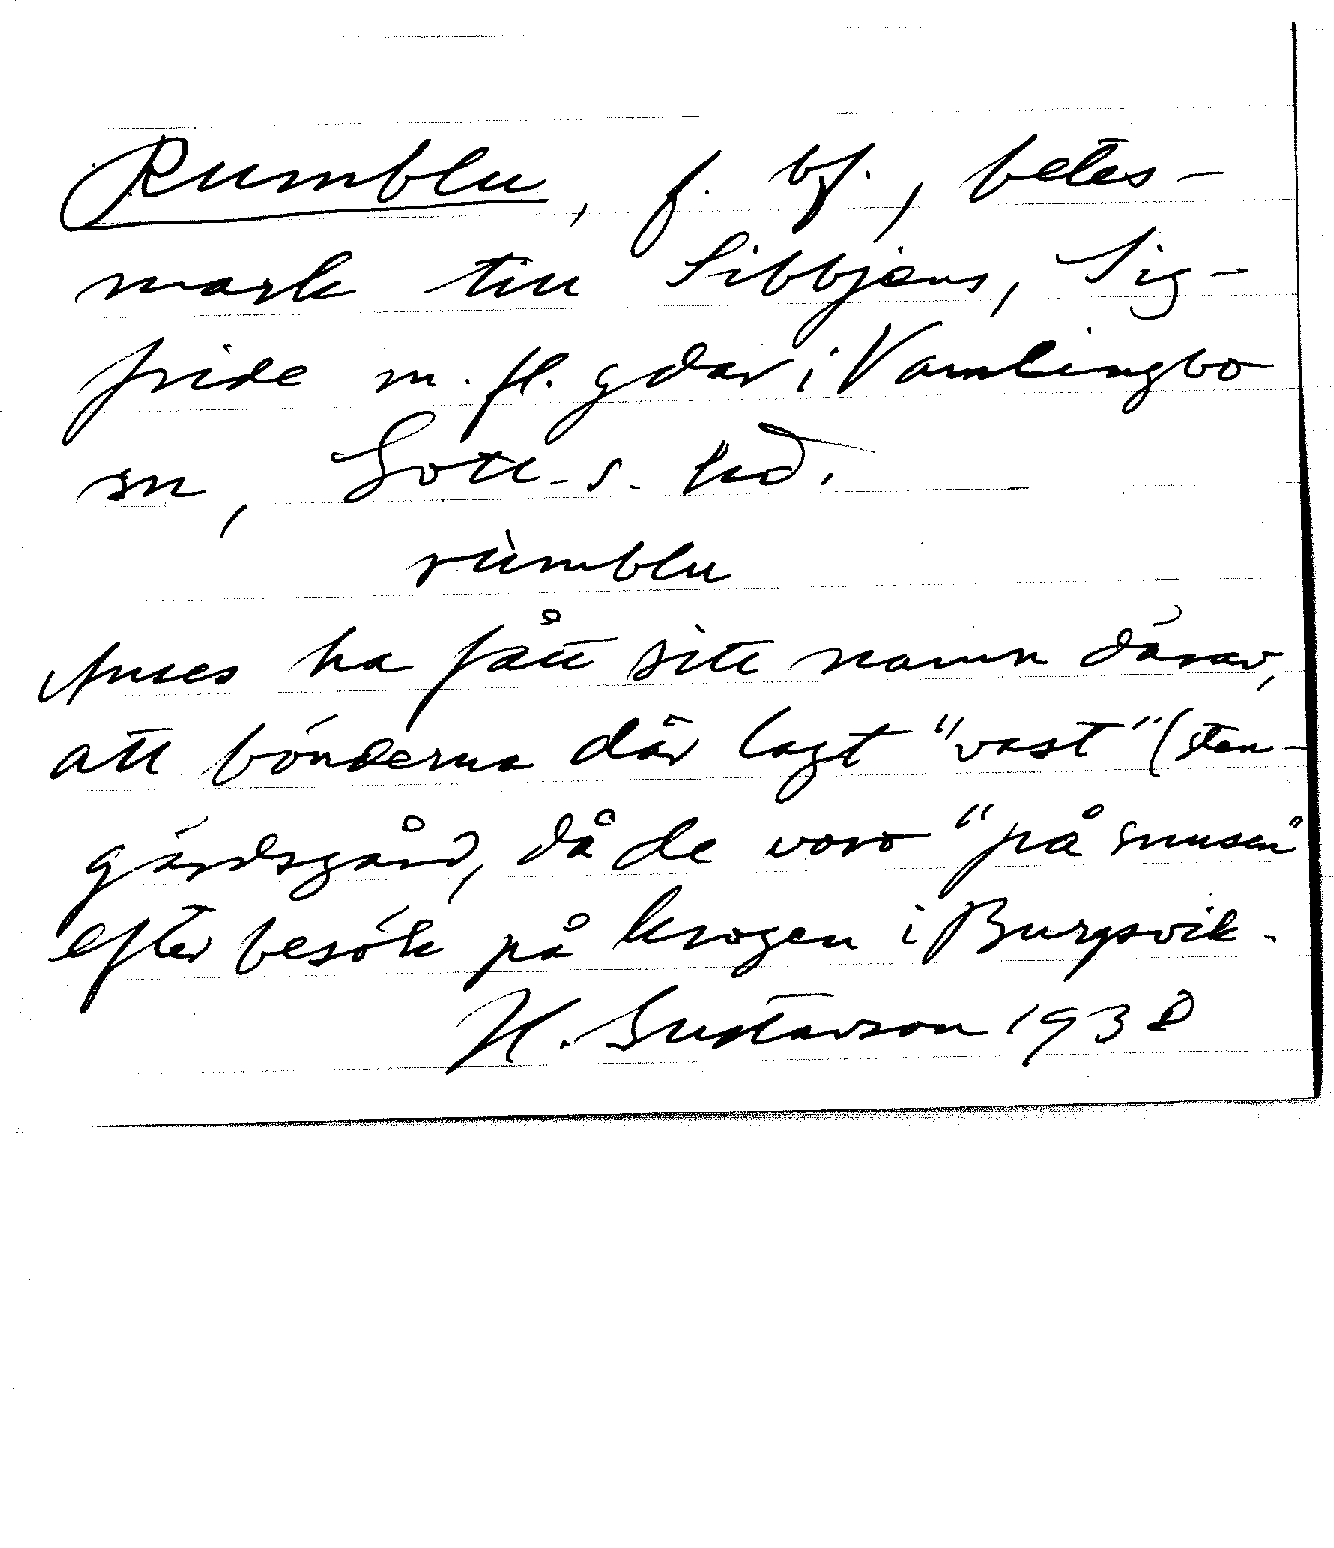 Rumblu, f. bf., betes-
mark till Sibbjens, Sig-
fride m. fl. gdar i Vamlingbo
sn, Gotl. s. hd.
rùmblu
Anses ha fått sitt namn därav,
att bönderna där lagt "vast" (sten-
gärdsgård, då de voro "på snusen"
efter besök på krogen i Burgsvik.
H. Gustavson 1938